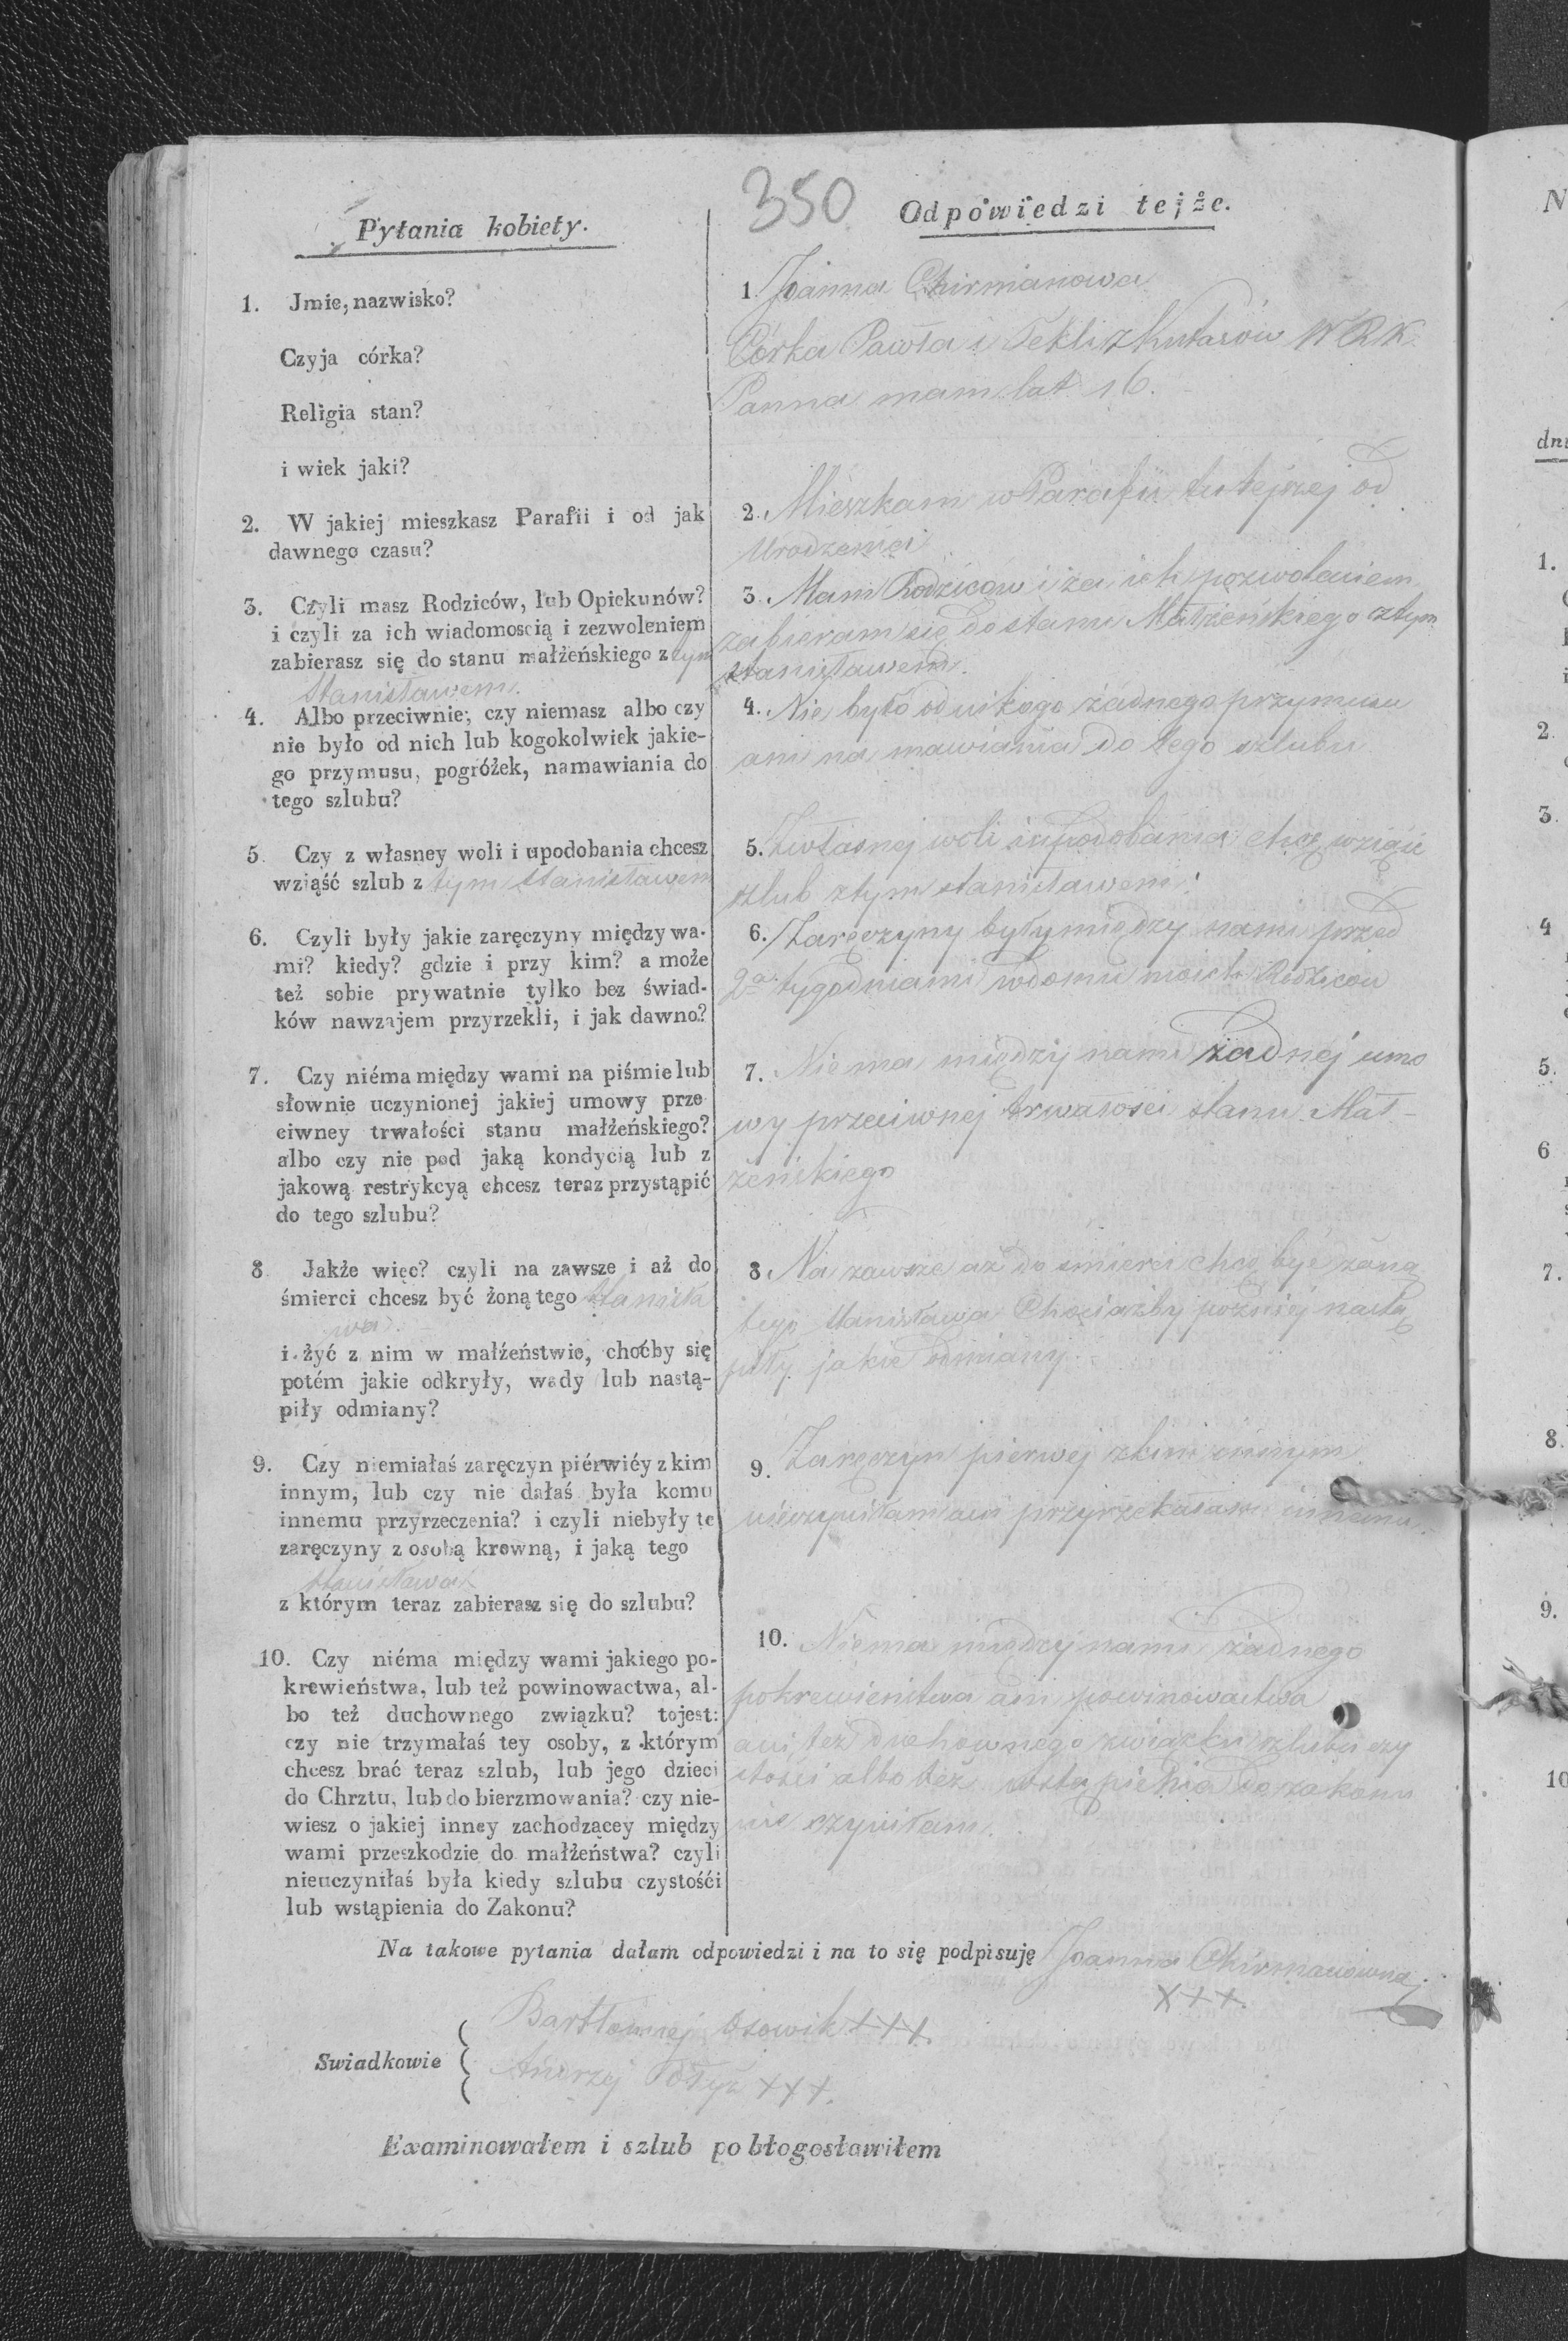 350
Pytania kobiety.
1. Jmie, nazwisko?
Czyja córka?
Religia stan?
i wiek jaki?
2. W jakiej mieszkasz Parafii i od jak
dawnego czasu?
3. Czyli masz Rodziców, lub Opiekunów?
i czyli za ich wiadomoscią i zezwoleniem
zabierasz się do stanu małżeńskiego z tym
Stanisławem.
4. Albo przeciwnie; czy niemasz albo czy
nie było od nich lub kogokolwiek jakie-
go przymusu, pogróżek, namawiania do
tego szlubu?
5. Czy z własney woli i upodobania chcesz
wziąść szlub z tym Stanisławem
6. Czyli były jakie zaręczyny między wa-
mi? kiedy? gdzie i przy kim? a może
też sobie prywatnie tylko bez świad-
ków nawzajem przyrzekli, i jak dawno?
7. Czy niéma między wami na piśmie lub
słownie uczynionej jakiej umowy prze
ciwney trwałości stanu małżeńskiego?
albo czy nie pod jaką kondycią lub z
jakową restrykcyą chcesz teraz przystąpić
do tego szlubu?
8. Jakże więc? czyli na zawsze i aż do
śmierci chcesz być żoną tego Stanisła
wa.
i żyć z nim w małżeństwie, choćby się
potém jakie odkryły, wady lub nastą-
piły odmiany?
9. Czy niemiałaś zaręczyn piérwiéy z kim
innym, lub czy nie dałaś była komu
innemu przyrzeczenia? i czyli niebyły te
zaręczyny z osobą krewną, i jaką tego
Stanisława
z którym teraz zabierasz się do szlubu?
10. Czy niéma między wami jakiego po-
krewieństwa, lub też powinowactwa, al-
bo też duchownego związku? tojest:
czy nie trzymałaś tey osoby, z którym
chcesz brać teraz szlub, lub jego dzieci
do Chrztu, lub do bierzmowania? czy nie-
wiesz o jakiej inney zachodzącey między
wami przeszkodzie do małżeństwa? czyli
nieuczyniłaś była kiedy szlubu czystośći
lub wstąpienia do Zakonu?
Odpowiedzi tejże.
1. Joanna Chirmanowa
Córka Pawła i Tekli z Kutasów W R K.
Panna mam lat 16.
2. Mieszkam w Parafii tutejszej od
Urodzenia
3. Mam Rodziców i za ich pozwoleniem
zabieram się do stanu Małżeńskiego z tym
Stanisławem.
4. Nie było od nikogo żadnego przymusu
ani na mawiania do tego szlubu
5. Z własnej woli i upodobania chcę wziąść
szlub z tym stanisławem.
6. Zaręczyny były między nami przed
2a tygodniami w domu moich Rodziców
7. Niema między nami żadnej umo
wy przeciwnej trwałości stanu Mał-
żeńskiego
8. Na zawsze aż do śmierci chcę być żoną
tego Stanisława Chociażby później nastą
piły jakie odmiany.
9. Zaręczyn pierwej z kim innym
nieczyniłam ani przyrzekałam innemu.
10. Niema między nami żadnego
pokrewieństwa ani powinowactwa
ani też duchownego związku szlubu czy
stości albo też wstąpienia do zakonu
nie czyniłam.
Na takowe pytania dałam odpowiedzi i na to się podpisuję Joanna Chirmanowna
X++.
Swiadkowie
Bartłomiej Osowik +++.
Andrzej +++.
Examinowałem i szlub pobłogosławiłem
N
dni
1.
2.
3.
4
5.
6
7.
8.
9.
10